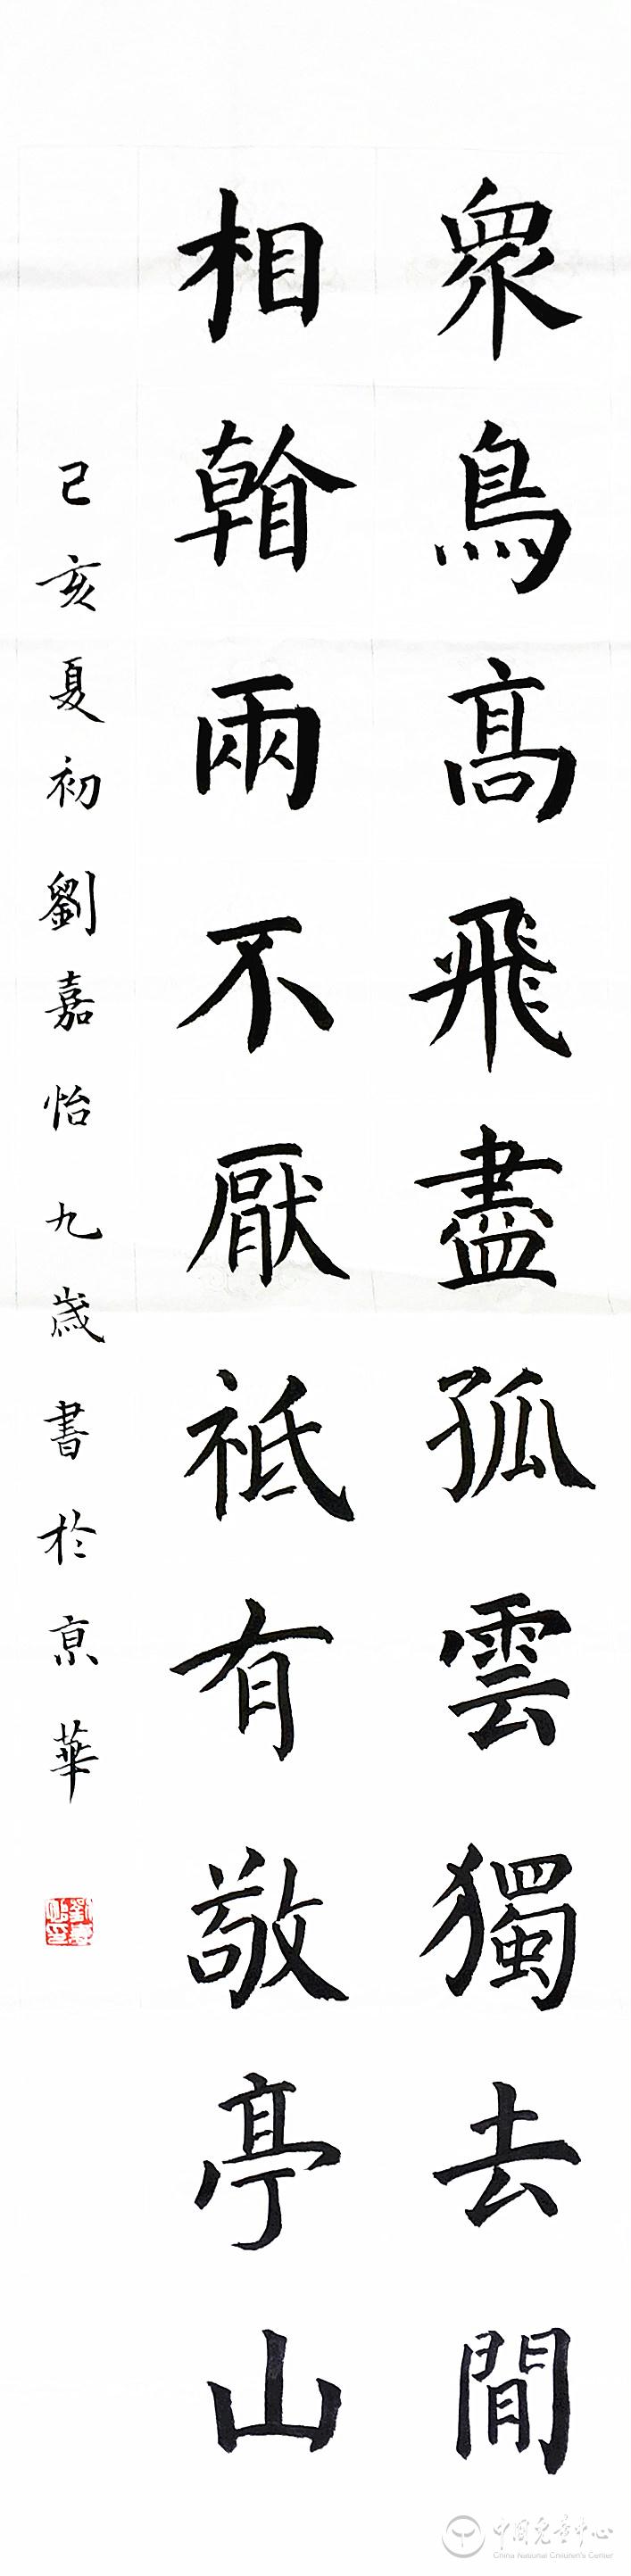 眾鳥髙飛盡孤雲獨去閒
相看兩不厭祗有敬亭山
己亥夏初劉嘉怡九歲書於京華
中國兒童中心
China National Children's Center